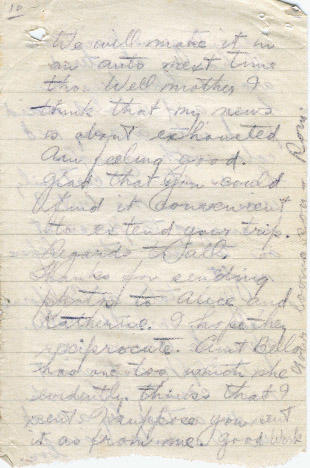 10 -
We will make it in
an auto next time
tho. Well mother I
think that my news
is about exhausted
Am feeling good.
glad that you could
find it convenient
to extend your trip.
Regards to all.
Thanks for sending
photo to Alice and
Katherine. I hope they
reciprocate. Aunt Bella
has one too which she
evidently thinks that I
sent. I suppose you sent
it as from me. Good work
Your loving son - Rory.